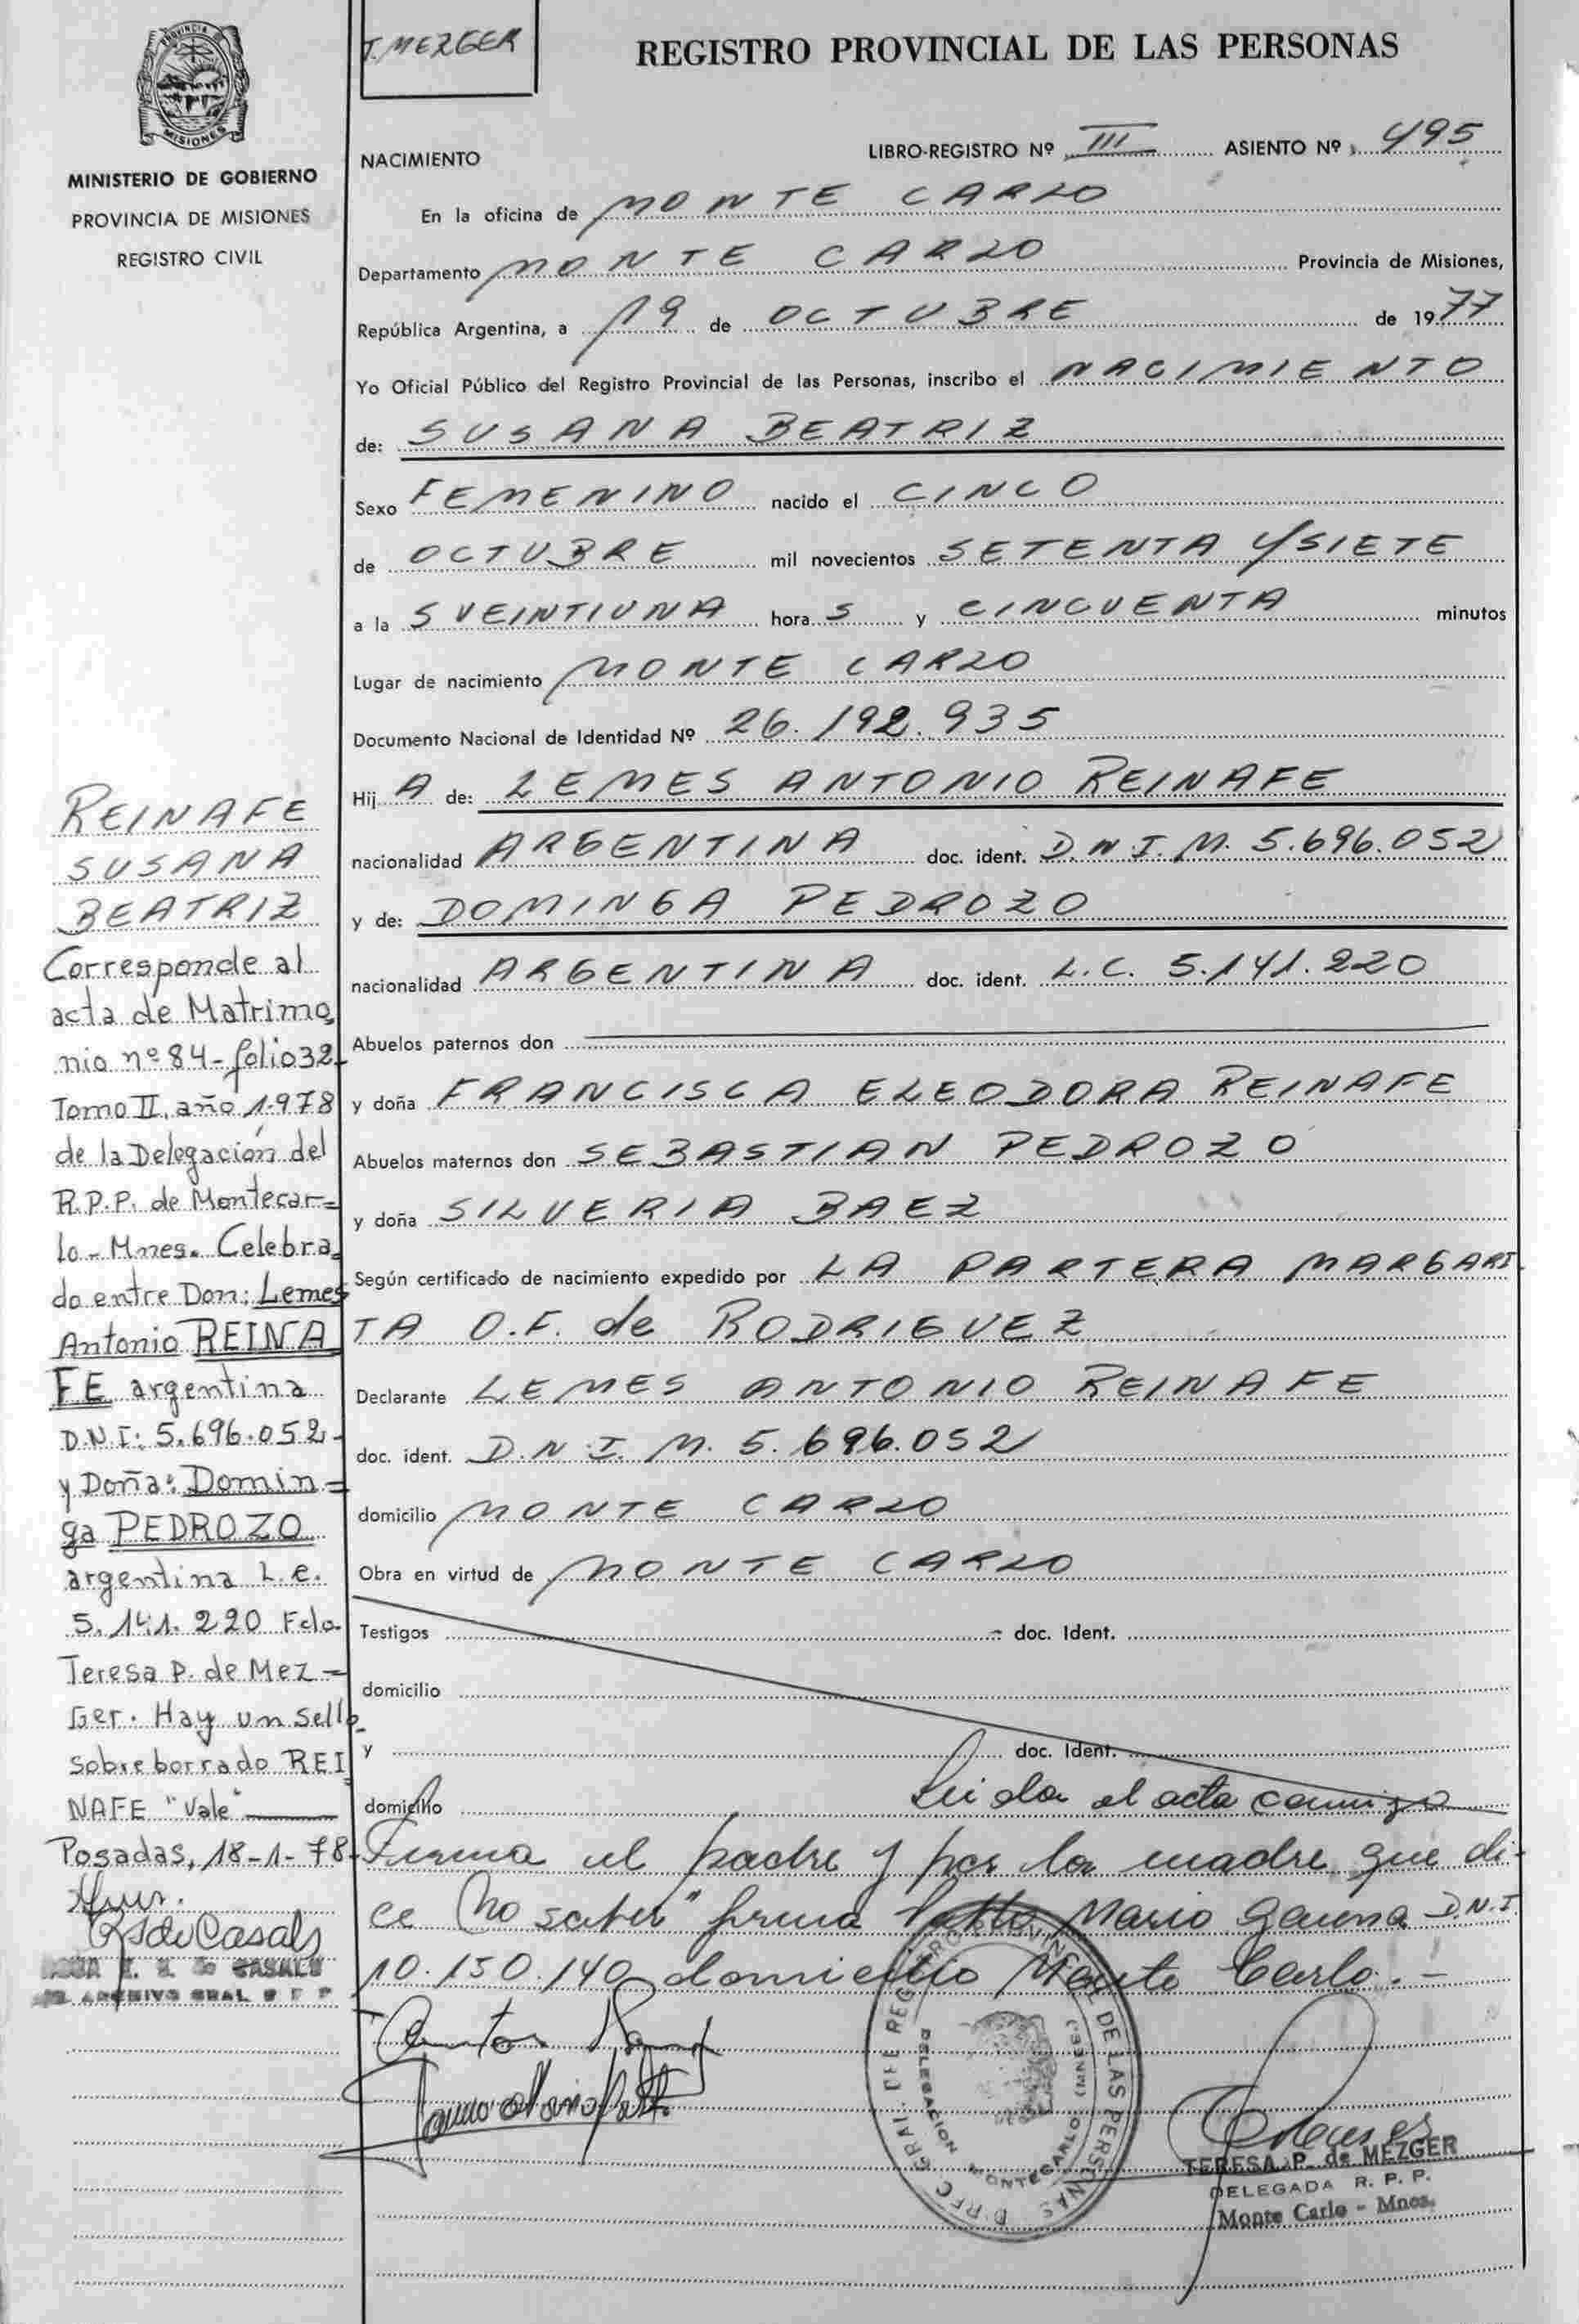 T. MEZGER
REGISTRO PROVINCIAL DE LAS PERSONAS
PROVINCIA DE
MISIONES
MINISTERIO DE GOBIERNO
PROVINCIA DE MISIONES
REGISTRO CIVIL
NACIMIENTO
LIBRO-REGISTRO Nº III ASIENTO Nº 495
En la oficina de MONTE CARLO
Departamento MONTE CARLO Provincia de Misiones,
República Argentina, a 19 de OCTUBRE de 1977
Yo Oficial Público del Registro Provincial de las Personas, inscribo el NACIMIENTO
de: SUSANA BEATRIZ
Sexo FEMENINO nacido el CINCO
de OCTUBRE mil novecientos SETENTA Y SIETE
a la S VEINTIUNA hora S y CINCUENTA minutos
Lugar de nacimiento MONTE CARLO
Documento Nacional de Identidad Nº 26.192.935
Hij A de: LEMES ANTONIO REINAFE
nacionalidad ARGENTINA doc. ident. D.N.I. M. 5.696.052
y de: DOMINGA PEDROZO
nacionalidad ARGENTINA doc. ident. L.C. 5.141.220
Abuelos paternos don
y doña FRANCISCA ELEODORA REINAFE
Abuelos maternos don SEBASTIAN PEDROZO
y doña SILVERIA BAEZ
Según certificado de nacimiento expedido por LA PARTERA MARGARI
TA O.F. de RODRIGUEZ
Declarante LEMES ANTONIO REINAFE
doc. ident. D.N.I. M. 5.696.052
domicilio MONTE CARLO
Obra en virtud de MONTE CARLO
Testigos doc. Ident.
domicilio
y doc. Ident.
domicilio Leida el acta conmigo
Firma el padre y por la madre que di-
ce "No saber" firma Mario Gauna D.N.I.
10.150.140 domicilio Monte Carlo.-
REINAFE
SUSANA
BEATRIZ
Corresponde al
acta de Matrimo
nio nº 84-folio 32-
Tomo II, año 1.978
de la Delegación del
R.P.P. de Montecar=
lo - Mnes. Celebra
do entre Don: Lemes
Antonio REINA
FE argentina
D.N.I: 5.696.052-
y Doña: Domin=
ga PEDROZO
argentina L.C.
5.141.220 Fdo
Teresa P. de Mez=
Ger. Hay un sello
sobre borrado REI
NAFE "Vale"
Posadas, 18-1-78-
de Casals
DE CASALS
ARCHIVO GRAL R P P
DIREC. GRAL. DEL REGISTRO PROVINCIAL DE LAS PERSONAS
DELEGACION MONTECARLO (MNES)
TERESA P. de MEZGER
DELEGADA R. P. P.
Monte Carlo - Mnes.